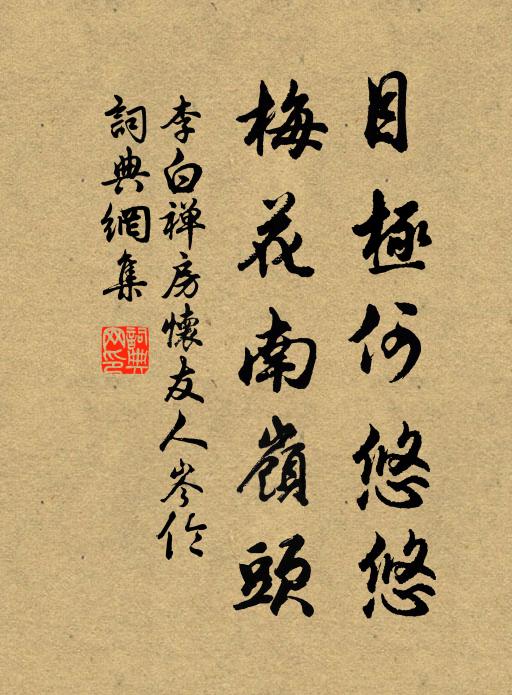 目極何悠悠
梅花南嶺頭
李白禅房懷友人岑倫
詞典網集
詞典网印